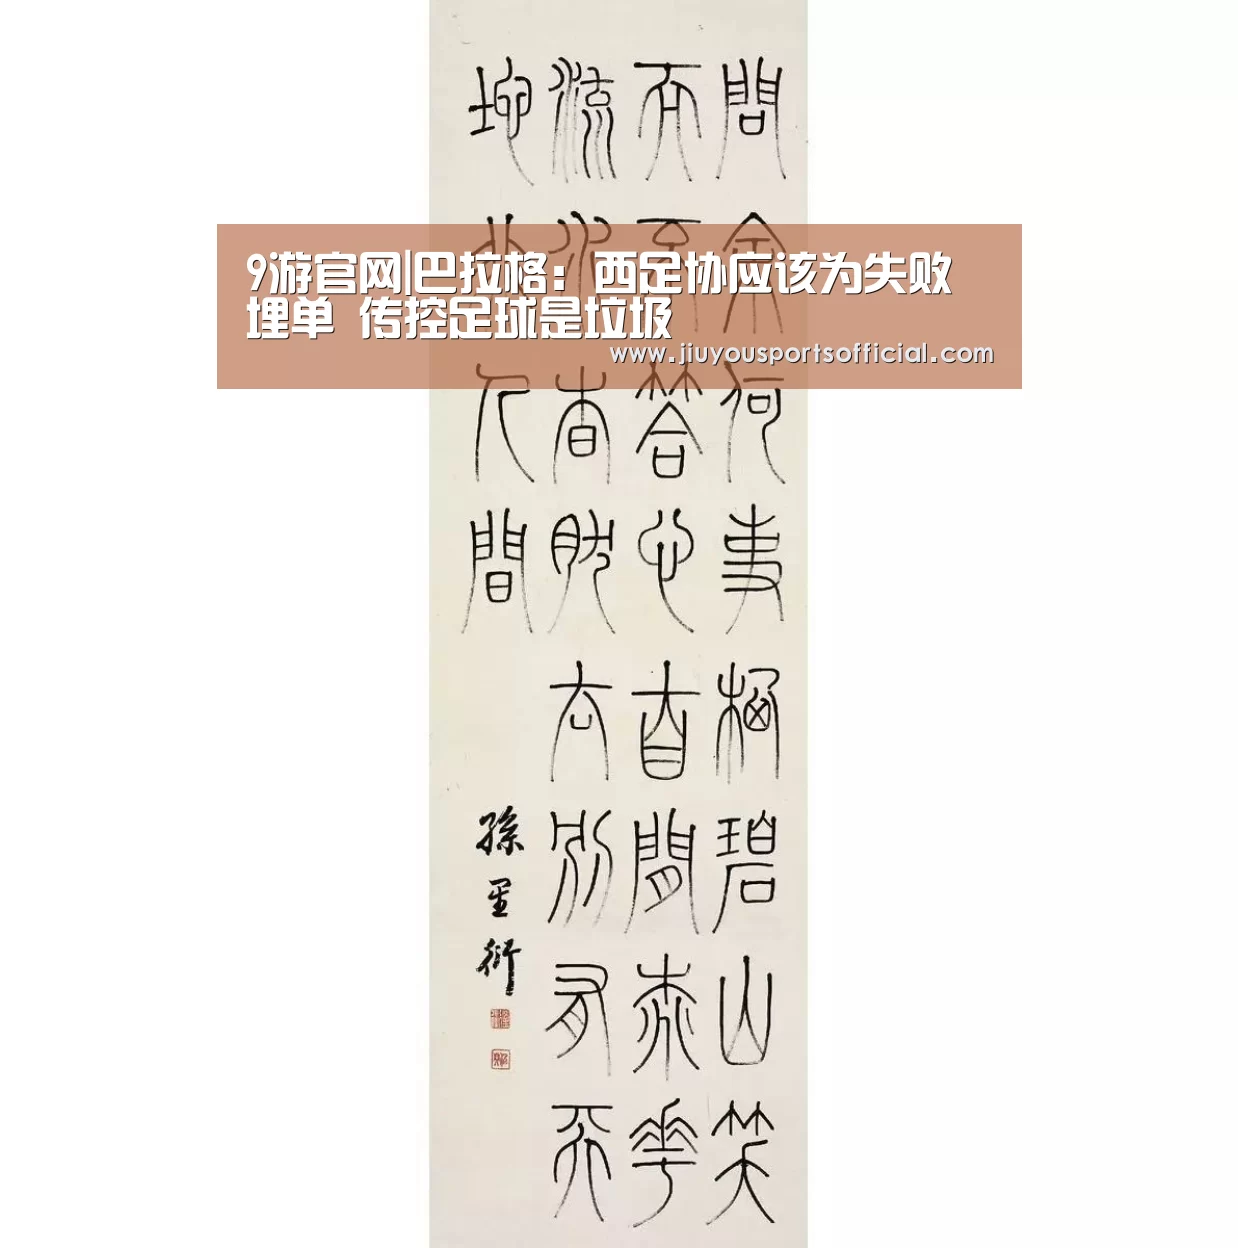 9游官网|巴拉格：西足协应该为失败
埋单 传控足球是垃圾
www.jiuyousportsofficial.com
問余何事栖碧山笑
而不答心自閒桃花
流水杳然去別有天
地非人間
孫星衍